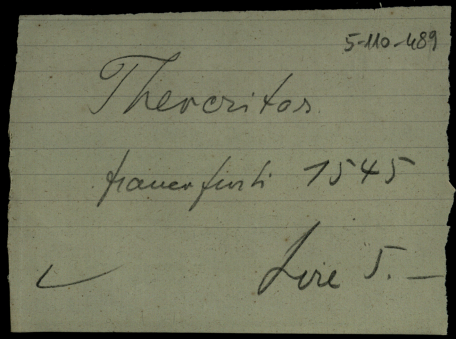 5-110-489
Theocritos
francofurti 1545
Lire 5.—